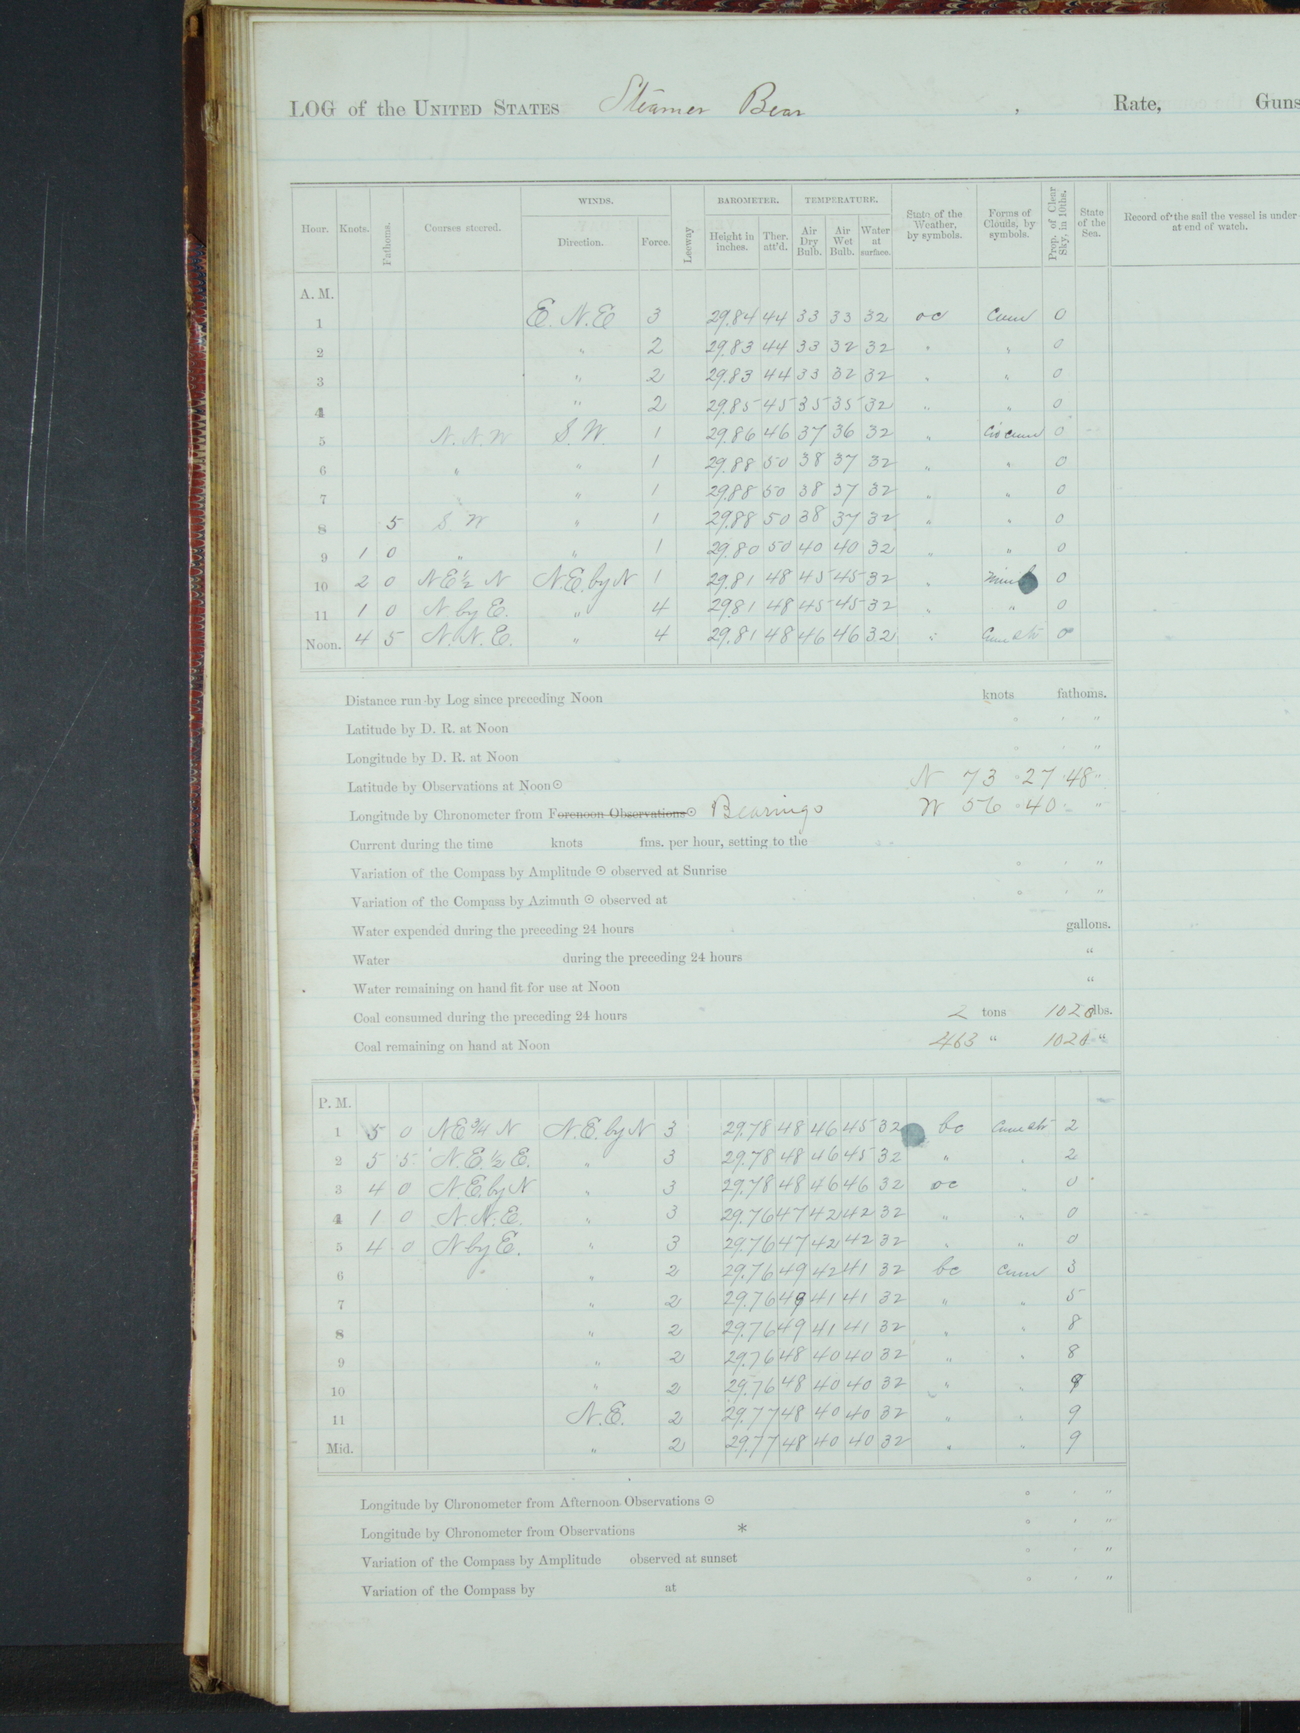 LOG of the UNITED STATES Steamer Bear , Rate, Guns
Hour. Knots. Fathoms. Courses steered. WINDS. Direction. Force. Leeway BAROMETER. Height in inches. Ther. att'd. TEMPERATURE. Air Dry Bulb. Air Wet Bulb. Water at surface. State of the Weather, by symbols. Forms of Clouds, by symbols. Prop. of Clear Sky, in 10ths. State of the Sea. Record of the sail the vessel is under at end of watch.
A. M.
1 E. N. E 3 29.84 44 33 33 32 oc Cum 0
2 " 2 29.83 44 33 32 32 " " 0
3 " 2 29.83 44 33 32 32 " " 0
4 " 2 29.85 45 35 35 32 " " 0
5 N. N. W S. W. 1 29.86 46 37 36 32 " Cir cum 0
6 " " 1 29.88 50 38 37 32 " " 0
7 " 1 29.88 50 38 37 32 " " 0
8 5 S W " 1 29.88 50 38 37 32 " " 0
9 1 0 " " 1 29.80 50 40 40 32 " " 0
10 2 0 N E ½ N N. E. by N 1 29.81 48 45 45 32 " 0
11 1 0 N by E. " 4 29.81 48 45 45 32 " " 0
Noon. 4 5 N. N. E. " 4 29.81 48 46 46 32 " Cum str 0
Distance run by Log since preceding Noon knots fathoms.
Latitude by D. R. at Noon ° ' "
Longitude by D. R. at Noon ° ' "
Latitude by Observations at Noon ☉ N 73 ° 27 ' 48 "
Longitude by Chronometer from Forenoon Observations ☉ Bearings W 56 ° 40 ' "
Current during the time knots fms. per hour, setting to the
Variation of the Compass by Amplitude ☉ observed at Sunrise ° ' "
Variation of the Compass by Azimuth ☉ observed at ° ' "
Water expended during the preceding 24 hours gallons.
Water during the preceding 24 hours "
Water remaining on hand fit for use at Noon "
Coal consumed during the preceding 24 hours 2 tons 1020 lbs.
Coal remaining on hand at Noon 463 " 1020 "
P. M.
1 5 0 N E ¾ N N. E. by N 3 29.78 48 46 45 32 bc Cum str 2
2 5 5 N. E. ½ E. " 3 29.78 48 46 45 32 " " 2
3 4 0 N. E. by N " 3 29.78 48 46 46 32 oc " 0
4 1 0 N. N. E. " 3 29.76 47 42 42 32 " " 0
5 4 0 N by E. " 3 29.76 47 42 42 32 " " 0
6 " " 2 29.76 49 42 41 32 bc Cum 3
7 " 2 29.76 49 41 41 32 " " 5
8 " 2 29.76 49 41 41 32 " " 8
9 " 2 29.76 48 40 40 32 " " 8
10 " 2 29.76 48 40 40 32 " " 9
11 N. E. 2 29.77 48 40 40 32 " " 9
Mid. " 2 29.77 48 40 40 32 " " 9
Longitude by Chronometer from Afternoon Observations ☉ ° ' "
Longitude by Chronometer from Observations * ° ' "
Variation of the Compass by Amplitude observed at sunset ° ' "
Variation of the Compass by at ° ' "